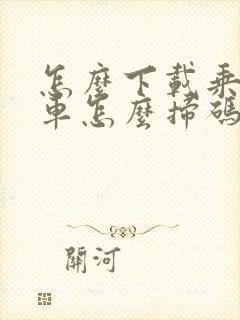 怎麼下載乘
車怎麼掃碼
關河